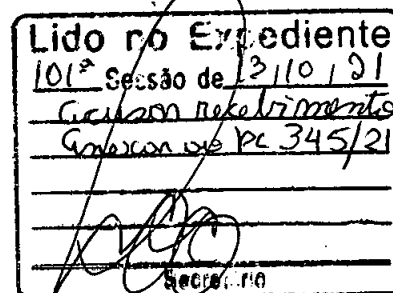 Lido no Expediente
101ª Sessão de 13/10/21
acuson recebimento
anexar ao PL 345/21
Secretário